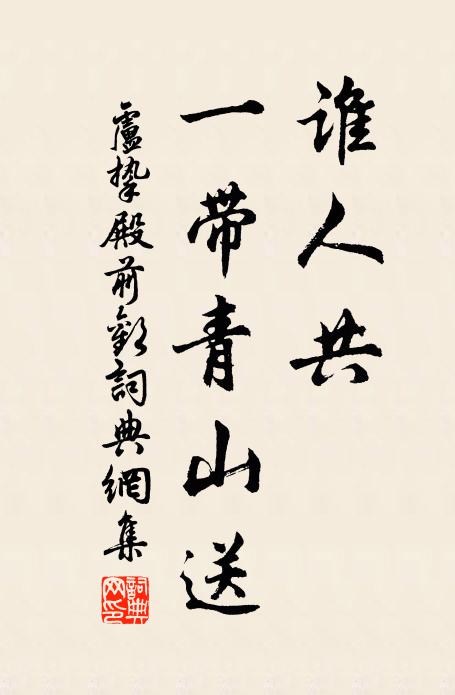 誰人共
一带青山送
盧摯殿前歡詞典網集
詞典网印